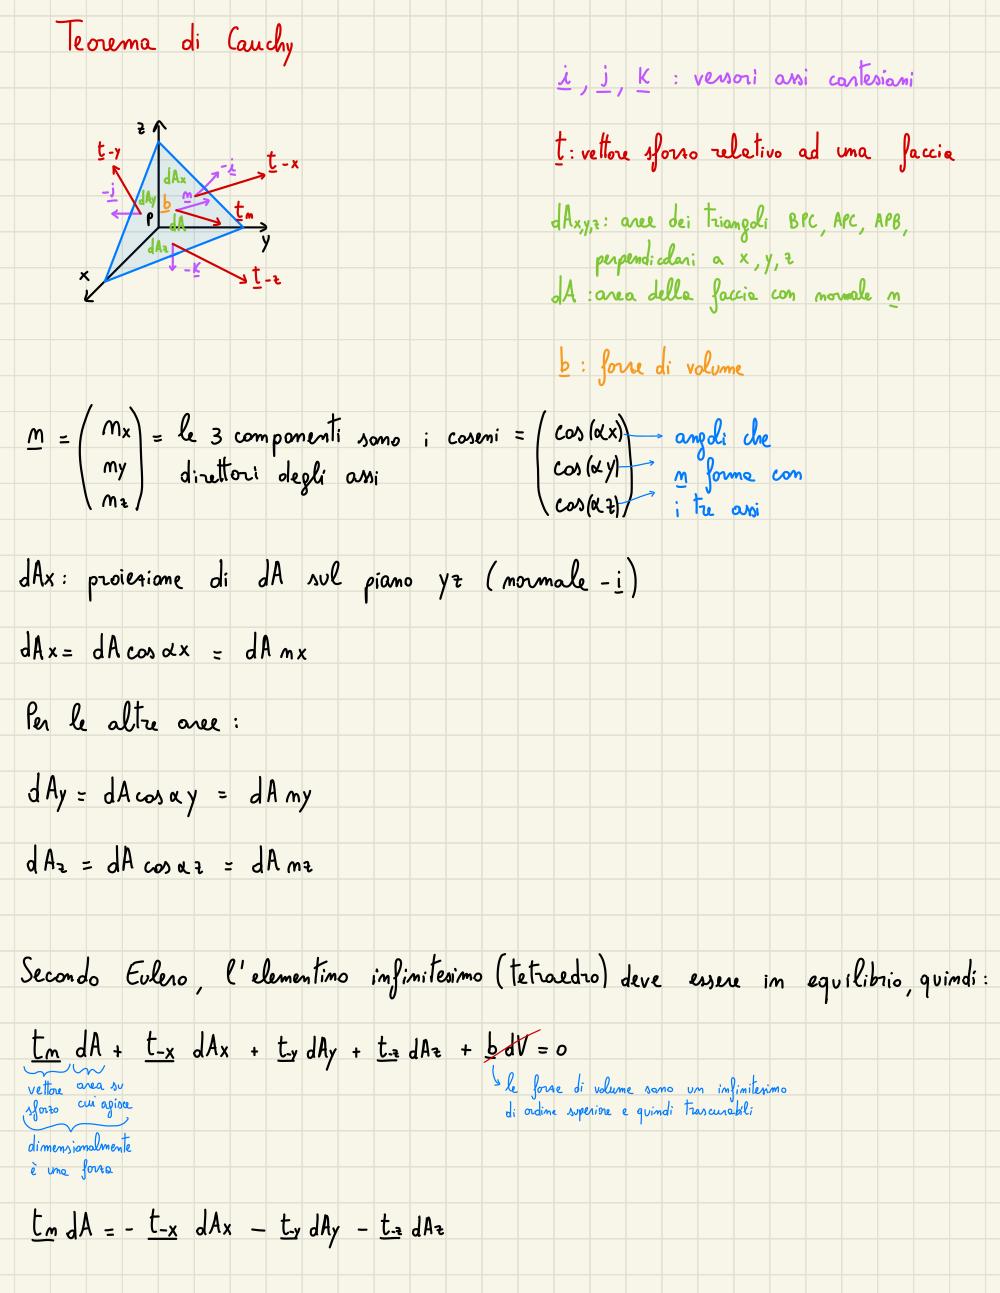 Teorema di Cauchy
i, j, k : versori assi cartesiani
t : vettore sforzo relativo ad una faccia
dAx,y,z : aree dei triangoli BPC, APC, APB,
perpendicolari a x, y, z
dA : area della faccia con normale n
b : forze di volume
z
t-y
-j
dAy
dAx
-i
t-x
n
b
P
dA
tn
y
dAz
-k
t-z
x
n = (nx ny nz) = le 3 componenti sono i coseni = (cos(αx) cos(αy) cos(αz))
direttori degli assi
angoli che
n forma con
i tre assi
dAx : proiezione di dA sul piano yz (normale -i)
dAx = dA cos αx = dA nx
Per le altre aree :
dAy = dA cos αy = dA ny
dAz = dA cos αz = dA nz
Secondo Eulero, l'elementino infinitesimo (tetraedro) deve essere in equilibrio, quindi :
tn dA + t-x dAx + t-y dAy + t-z dAz + b dV = 0
vettore sforzo
area su cui agisce
dimensionalmente
è una forza
le forze di volume sono un infinitesimo
di ordine superiore e quindi trascurabili
tn dA = - t-x dAx - t-y dAy - t-z dAz